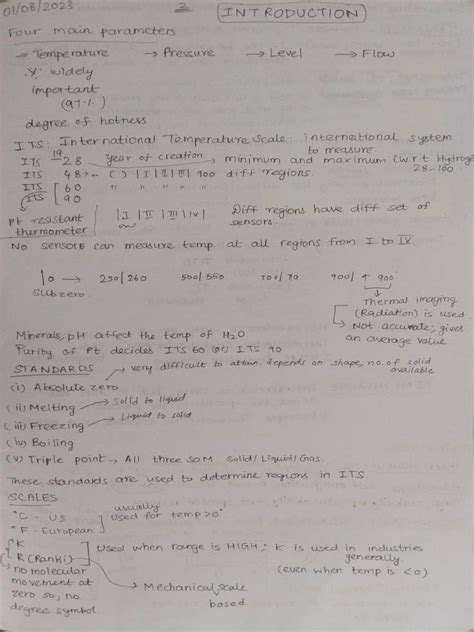 01/08/2023
2
INTRODUCTION
Four main parameters
→ Temperature → Pressure → Level → Flow
widely
important
(97%)
degree of hotness
ITS: International Temperature Scale: international system
to measure
ITS 1928 year of creation → minimum and maximum (w.r.t Hydrogen
28-100
ITS 48 ← ( ) | I | II | III | 900 diff regions.
ITS 60 " " " "
ITS 90
Pt resistant
thermometer
| I | II | III | IV |
Diff regions have diff set of
sensors.
No sensors can measure temp at all regions from I to IV
0 → 250/260 500/550 700/70 900/ ↑ 900
subzero.
Thermal imaging
(Radiation) is used.
→ Not accurate; gives
an average value
Minerals, pH affect the temp of H2O
Purity of Pt. decides ITS 60 (or) ITS 90
STANDARDS very difficult to attain. depends on shape, no. of solid
available
(i) Absolute zero
(ii) Melting → Solid to liquid
(iii) Freezing → liquid to solid
(iv) Boiling
(v) Triple point → All three SOM Solid/Liquid/Gas.
These standards are used to determine regions in ITS
SCALES
°C - US usually
used for temp>0°
°F - European
K
R (Ranki) Used when range is HIGH; K is used in industries
generally
(even when temp is <0)
no molecular
movement at
zero so, no
degree symbol
→ Mechanical scale
based